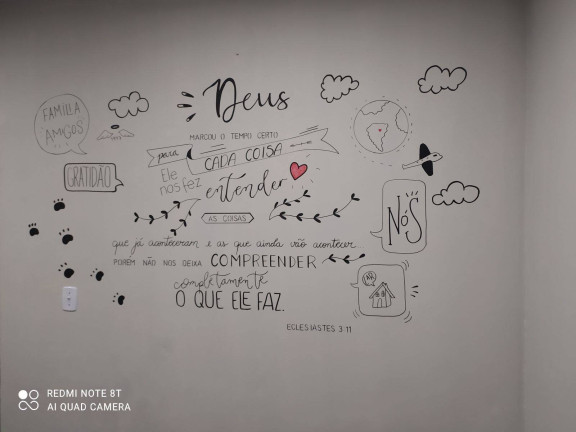 FAMÍLIA
AMIGOS
GRATIDÃO
Deus
MARCOU O TEMPO CERTO
para CADA COISA
Ele nos fez
entender
AS COISAS
que já aconteceram e as que ainda vão acontecer
PORÉM NÃO NOS DEIXA COMPREENDER
completamente
O QUE ELE FAZ.
ECLESIASTES 3:11
NÓS
LAR
REDMI NOTE 8T
AI QUAD CAMERA